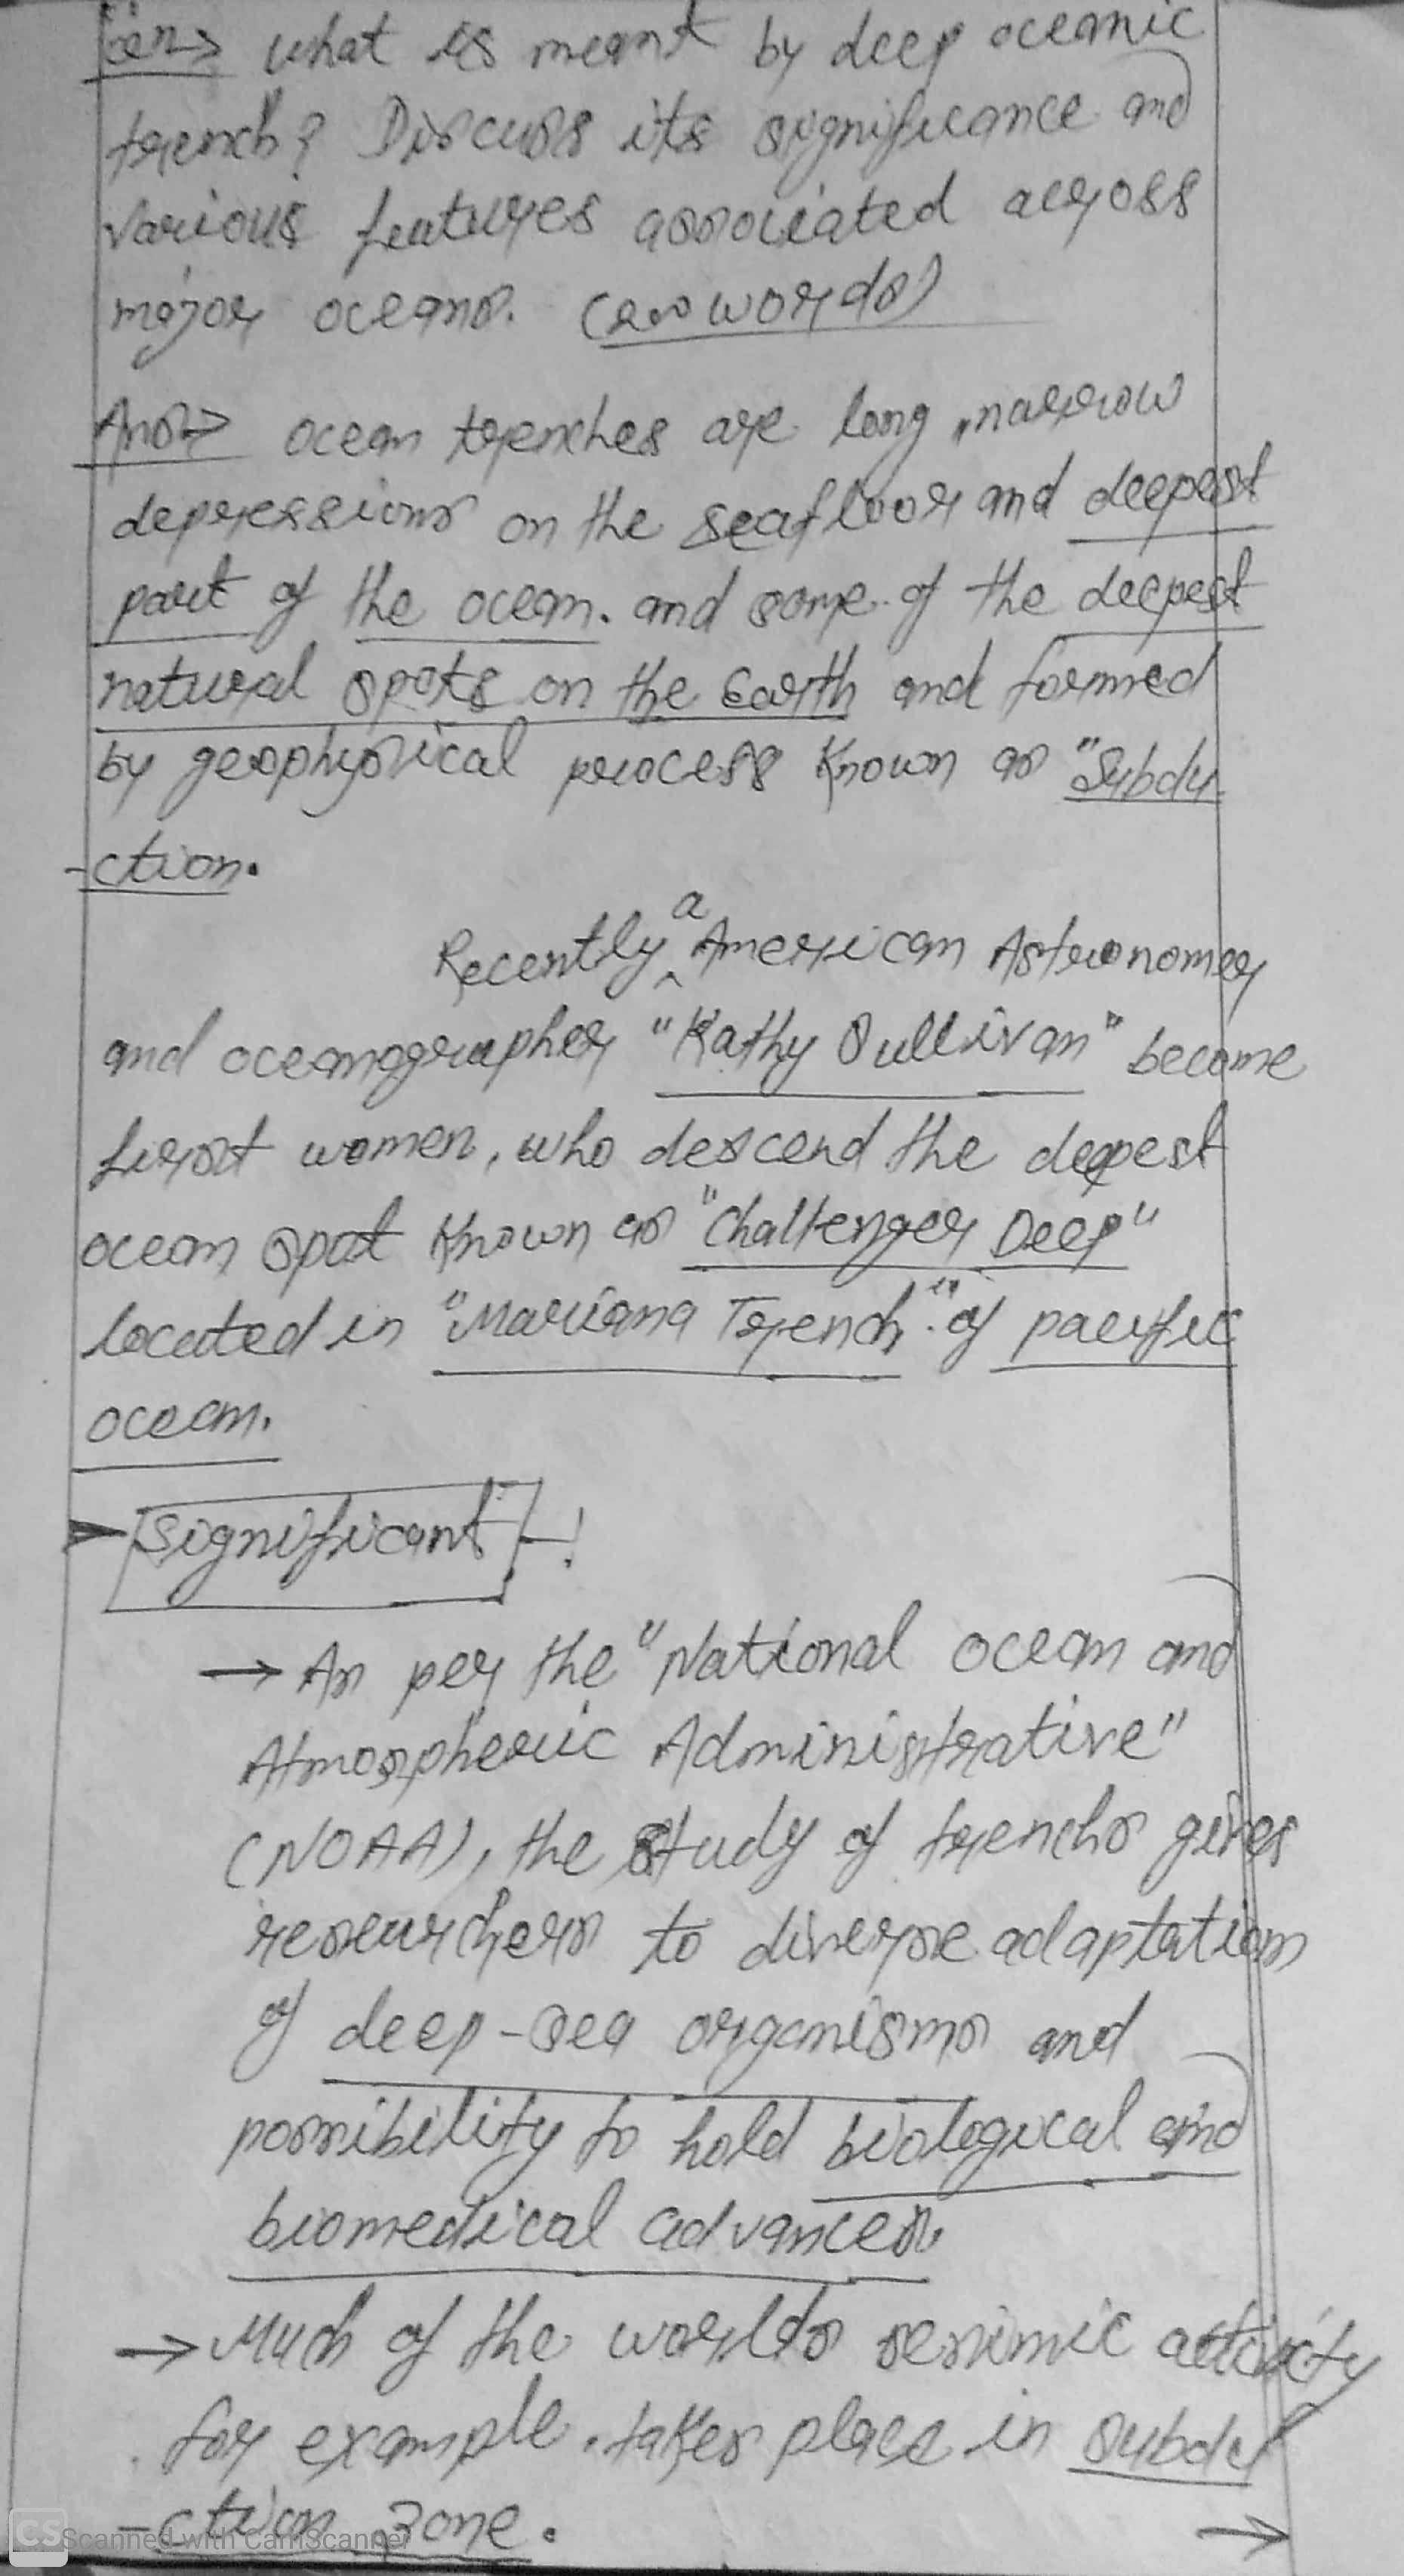 what is meant by deep oceanic
trench? Discuss its significance and
various features associated across
major oceans. (200 words)
Ans→ ocean trenches are long, narrow
depressions on the seafloor and deepest
part of the ocean. and some of the deepest
natural spots on the Earth and formed
by geophysical process known as "Subdu-
-ction.
Recently a American Astronomer
and oceanographer "Kathy Sullivan" become
first women, who descend the deepest
ocean spot known as "Challenger Deep"
located in "Mariana Trench" of pacific
ocean.
Significant -!
→ As per the "National ocean and
Atmospheric Administrative"
(NOAA), the study of trenchs gives
researchers to diverse adaptation
of deep-sea organisms and
possibility to hold biological and
biomedical advances.
→ Much of the worlds sesimic activity
for example, takes place in subdu
-ction zone.
→
CS Scanned with CamScanner